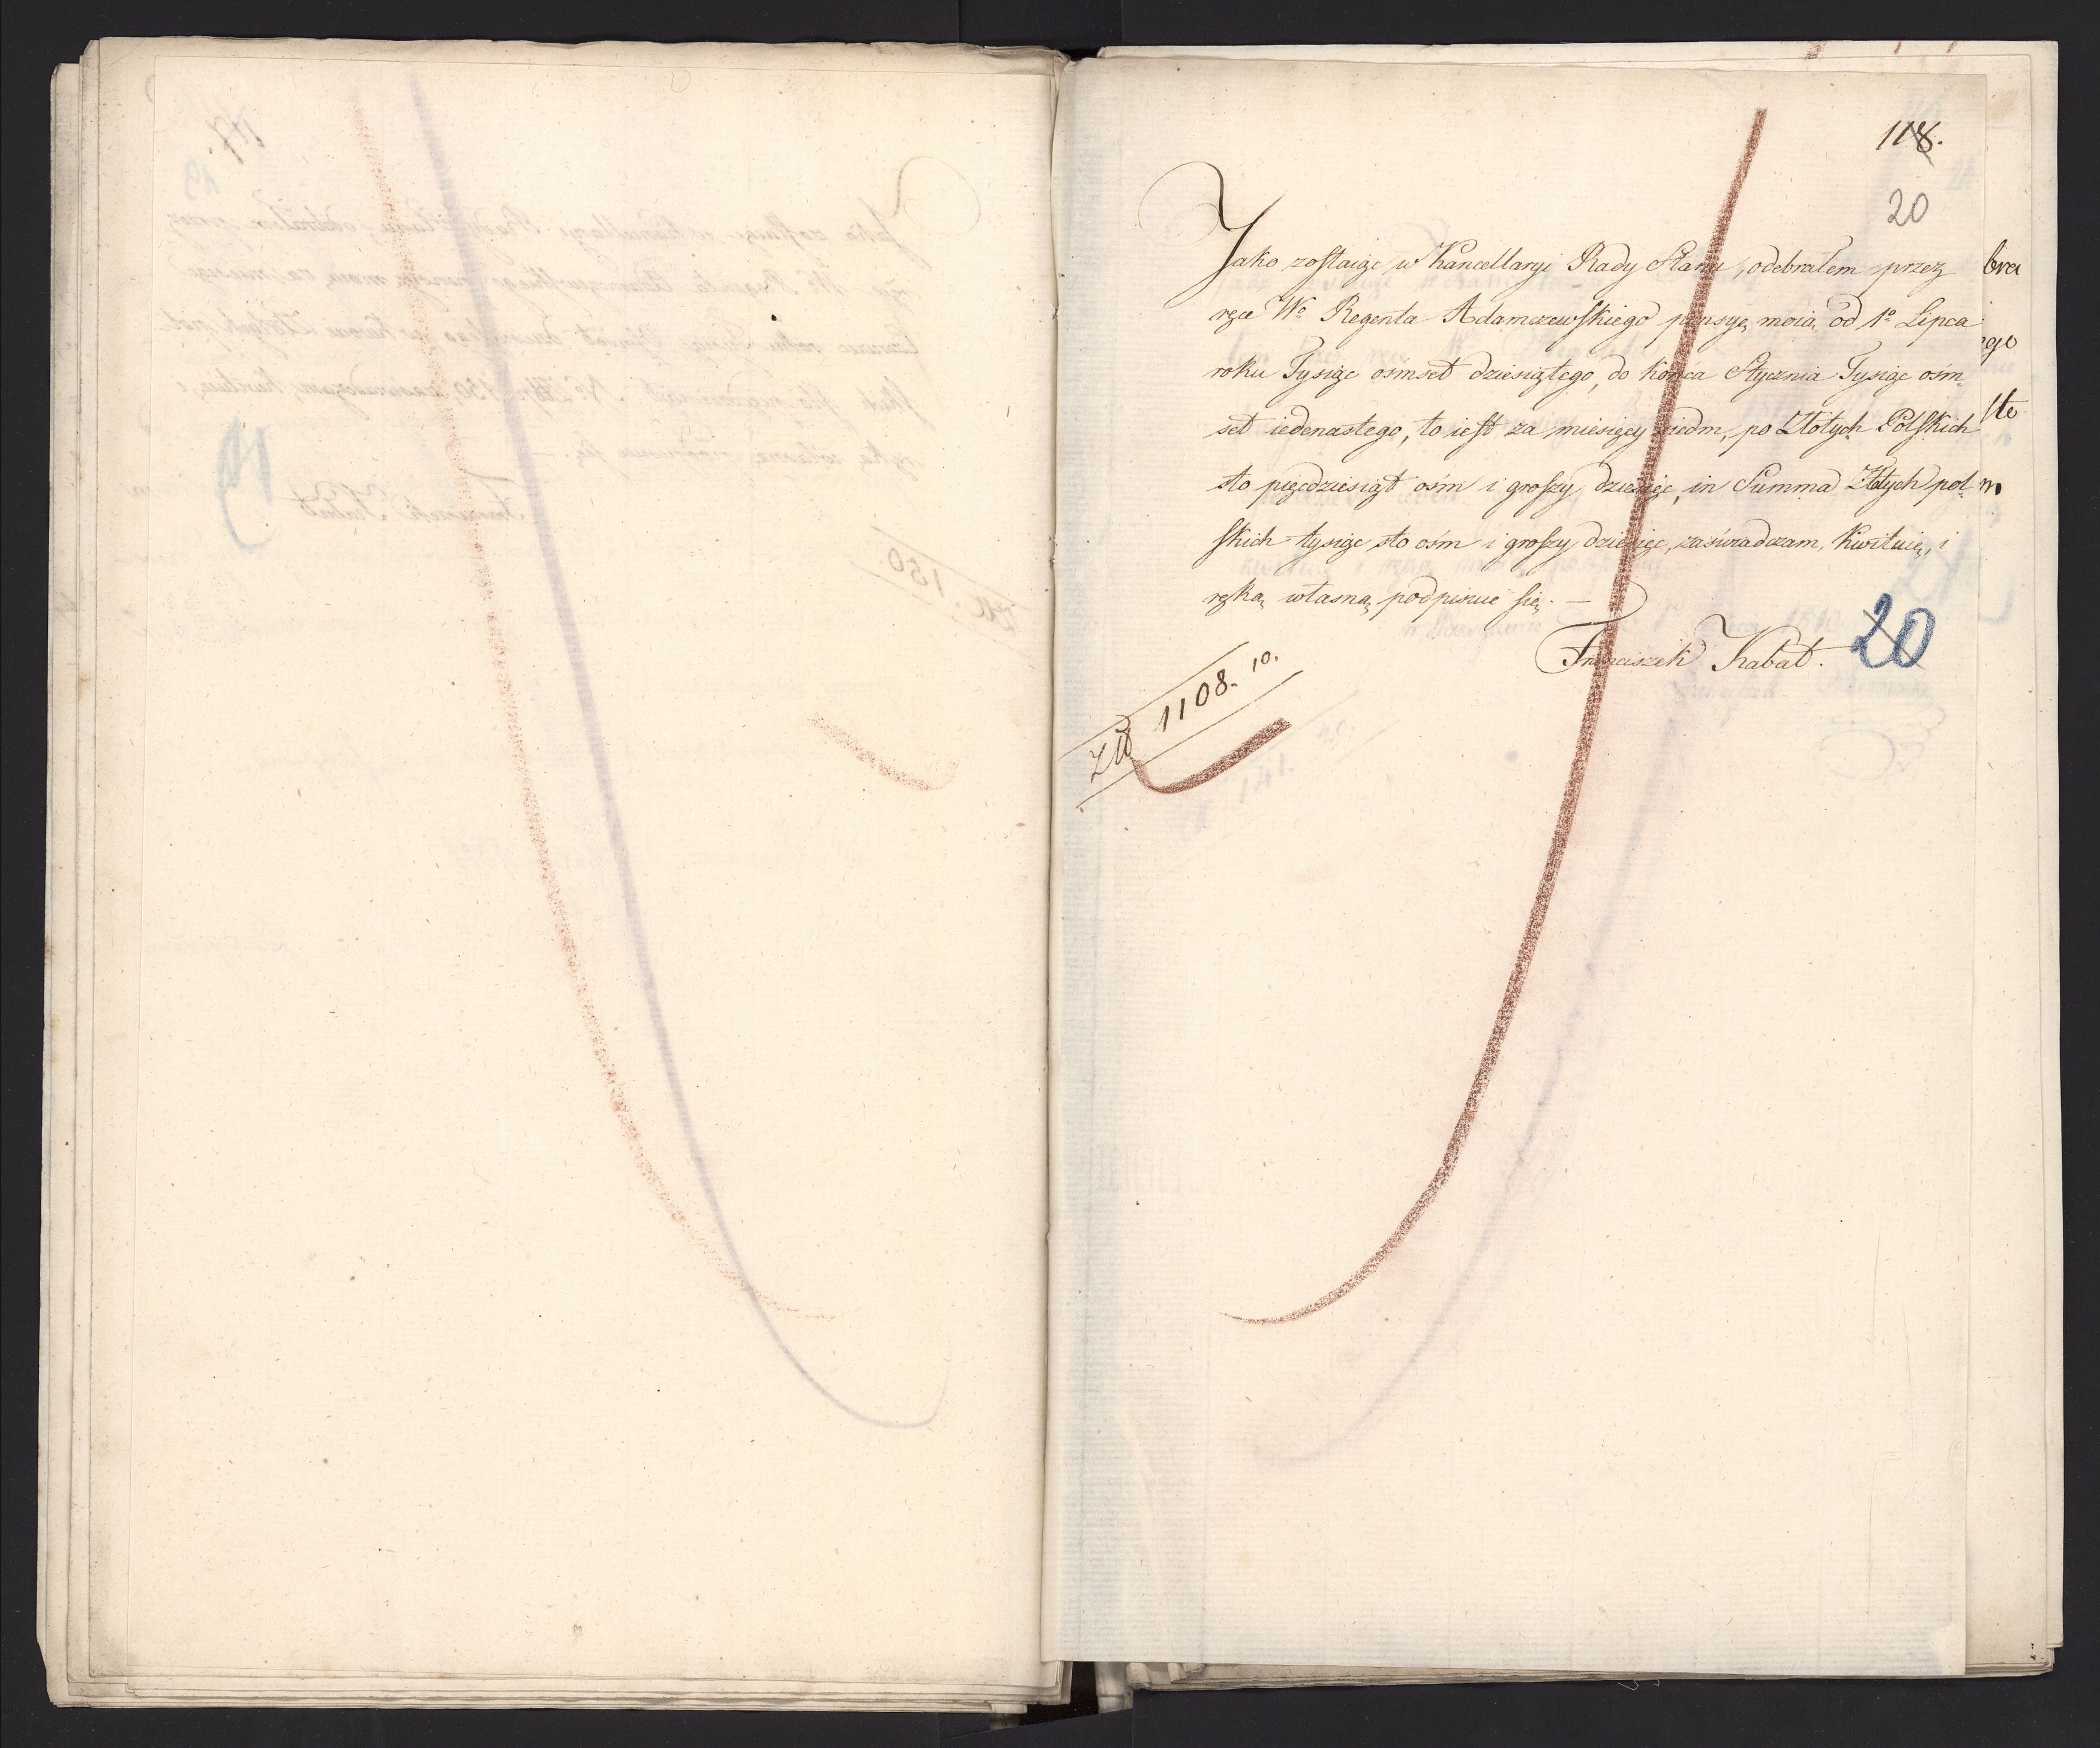 118.
20
Jako zostaiąc w Kancellaryi Rady Stanu, odebrałem przez
ręce Wo Regenta Adamczewskiego pensyę moią od 1o Lipca
roku Tysiąc osmset dziesiątego, do końca Stycznia Tysiąc ośm
set iedenastego, to iest za miesięcy siedm, po Złotych Polskich
sto pięcdziesiąt ośm i groszy dziesięc, in Summa Złotych pol
skich tysiąc sto ośm i groszy dziesięc, zaświadczam, kwituię, i
ręką własną podpisuie się. —
Franciszek Kabat.
20
Zł 1108. 10.